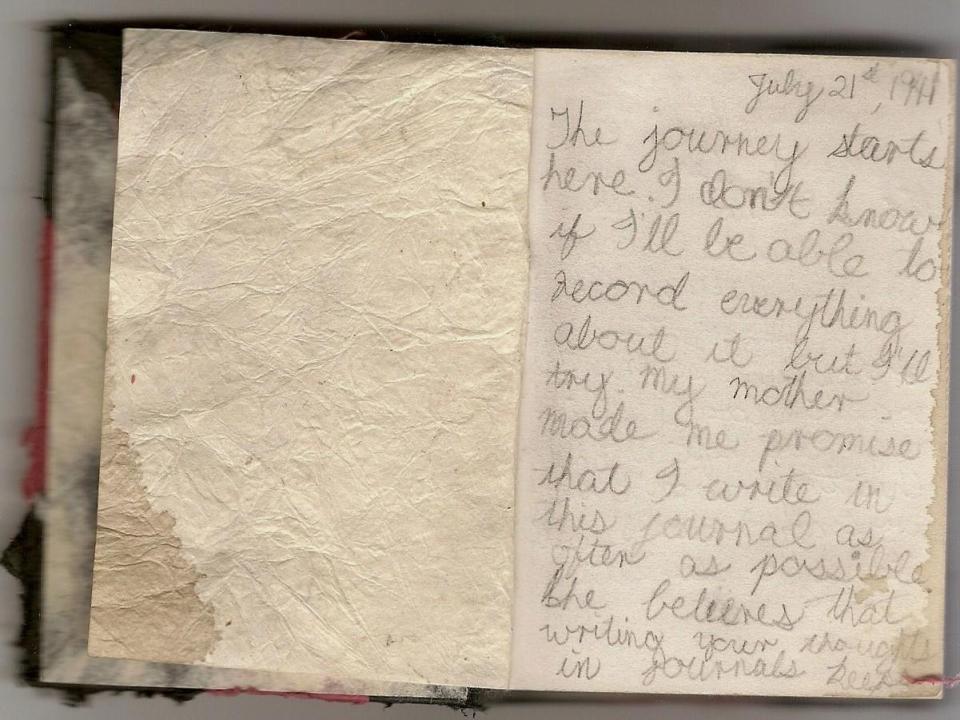 July 21st, 1941
The journey starts
here. I don't know
if I'll be able to
record everything
about it but I'll
try. My mother
made me promise
that I write in
this journal as
often as possible
She believes that
writing your thoughts
in journals keeps